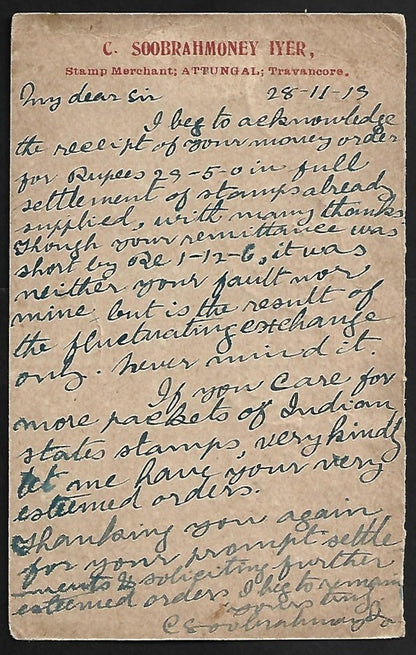 C. SOOBRAHMONEY IYER,
Stamp Merchant; ATTUNGAL; Travancore.
My dear Sir 28-11-19
I beg to acknowledge
the receipt of your money order
for Rupees 29-5-0 in full
settlement of stamps already
supplied, with many thanks
Though your remittance was
short by Re 1-12-6, it was
neither your fault nor
mine but is the result of
the fluctuating exchange
only. Never mind it.
If you care for
more packets of Indian
states stamps, very kindly
let me have your very
esteemed orders.
Thanking you again
for your prompt settle
ments & soliciting further
esteemed orders I beg to remain
yours
C Soobrahmoney